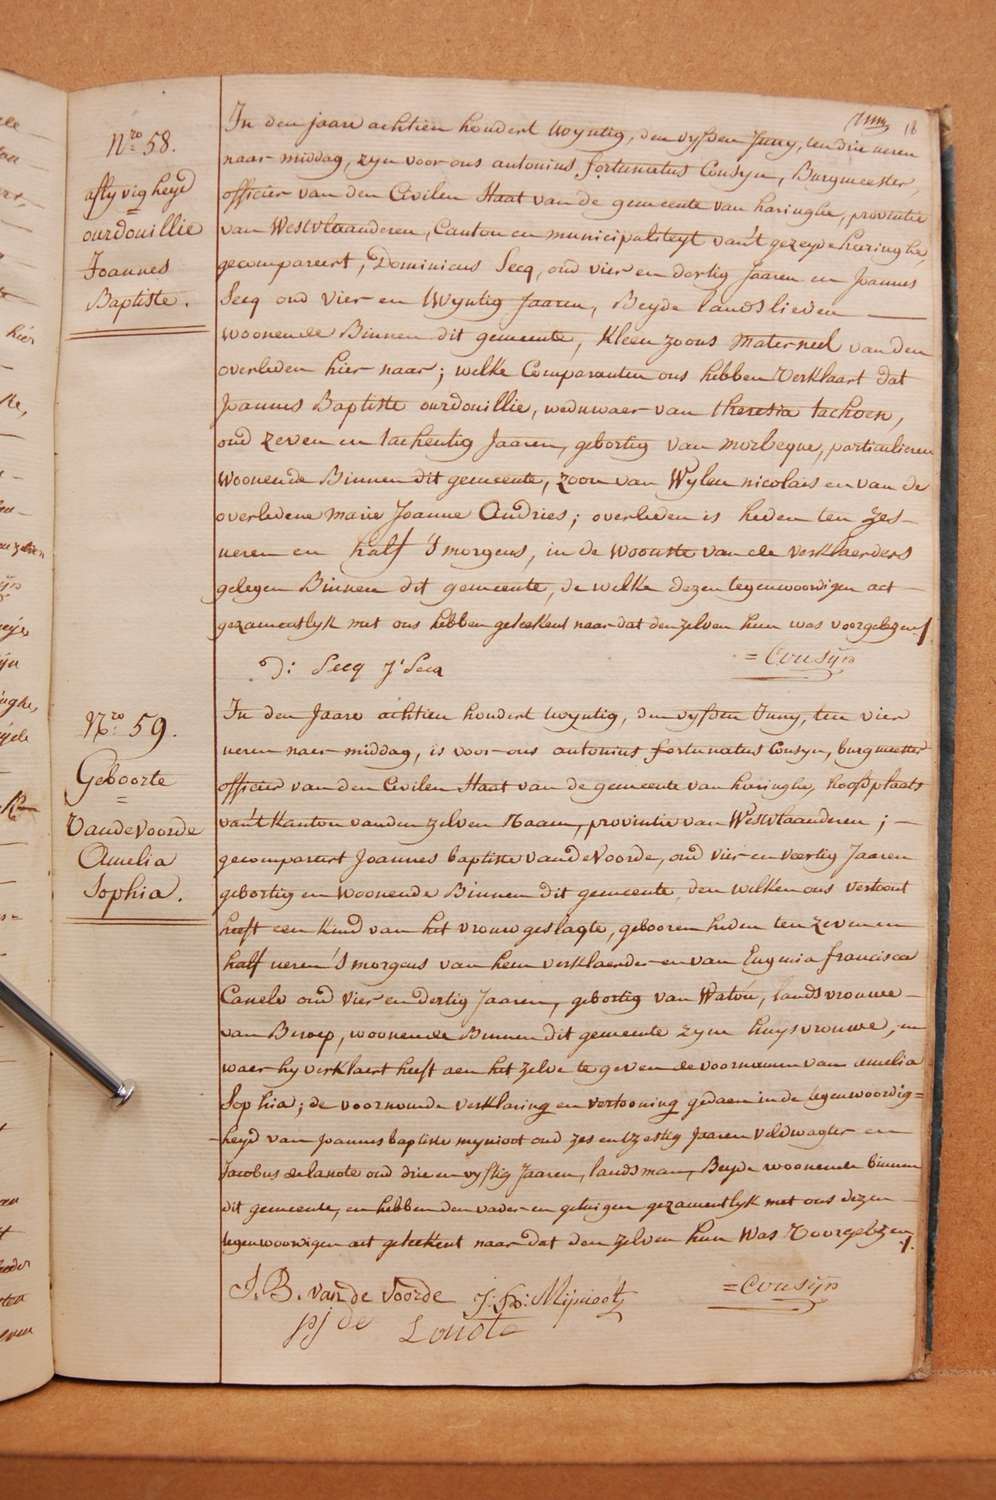 18
Nro 58.
aflyvigheyd
=
ourdouillie
Joannes
Baptiste.
In den jaare achtien hondert twyntig, den vyfden Juny, ten drie ueren
naar middag, zyn voor ons antonius fortunatus Cousyn, Burgmeester,
officier van den Civilen Staat van de gemeente van haringhe, provintie
van Westvlaanderen, Canton en municipaliteyt van't gezeyde haringhe,
gecompareert, Dominicus Secq, oud vier en dertig Jaaren en Joannes
Secq oud vier en twyntig Jaaren, Beyde landslieden
woonende Binnen dit gemeente, Kleen zoons materneel van den
overleden hier naar; welke Comparanten ons hebben Verklaart dat
Joannes Baptiste ourdouillie, weduwaer van theresia tachoen,
oud zeven en tachentig Jaaren, gebortig van morbeque, particulieren
woonende Binnen dit gemeente, zoon van Wylen nicolais en van de
overledene marie Joanne Andries; overleden is heden ten zes
ueren en half 'S morgens, in de woonste van de verklaerders
gelegen Binnen dit gemeente, de welke dezen tegenwoordigen act
gezamentlyk met ons hebben geteekent naar dat den zelven hun was voorgelezen./.
D: Secq J: Secq =Cousÿn
Nro 59.
Geboorte
=
VandeVoorde
Amelia
Sophia.
In den Jaare achtien hondert twyntig, den vyfden Juny, ten vier
ueren naer middag, is voor ons antonius fortunatus Cousyn, burgmeester
officier van den Civilen Staat van de gemeente van haringhe, hoofdplaats
van't Kanton van den zelven Naam, provintie van Westvlaanderen; —
gecompareert Joannes baptiste vandeVoorde, oud vier en veertig Jaaren
gebortig en woonende Binnen dit gemeente, den welken ons vertoont
heeft een Kind van het vrouwgeslagte, gebooren heden ten zeven en
half ueren 'S morgens van hem verklaerder en van Eugenia francisca
Canele oud vier en dertig Jaaren, gebortig van Watou, landsvrouwe
van Beroep, woonende Binnen dit gemeente zyne huysvrouwe, en
waer hy verklaert heeft aen het zelve te geven de voornamen van amelia
Sophia; de voornoemde verklaring en vertooning gedaen in de tegenwoordig=
heyd van joannes baptiste mynioot oud zes en tzestig Jaaren veldwagter en
Jacobus delanote oud drie en vyftig Jaaren, landsman, Beyde woonende binnen
dit gemeente, en hebben den vader en getuigen gezamentlyk met ons dezen
tegenwoordigen act geteekent naar dat den zelven hun Was Voorgelezen./.
J. B. van de Voorde J: B: Mijnioot =Cousÿn
pj de Lanote